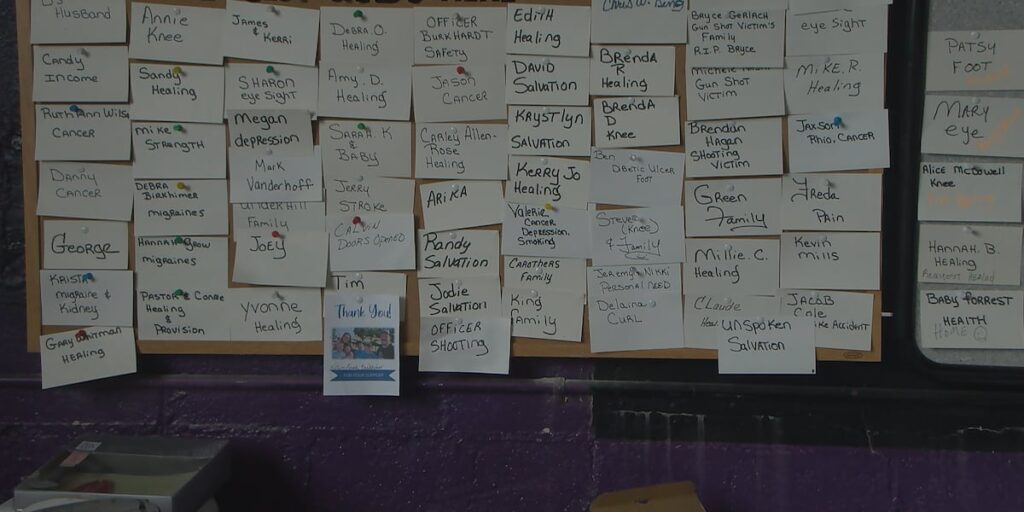 Husband
Candy
Income
Ruth Ann Wils
Cancer
Danny
Cancer
George
Krista
migraine &
Kidney
Gary
Healing
Annie
Knee
Sandy
Healing
mike
Strength
Debra
Birkhimer
migraines
Hannah Grow
migraines
Pastor & Connie
Healing
&
Provision
James
&
Kerri
Sharon
eye Sight
Megan
depression
Mark
Vanderhoff
underhill
Family
Joey
Yvonne
Healing
Debra O.
Healing
Amy. D.
Healing
Sarah. K
&
Baby
Jerry
Stroke
Calvin
Doors Opened
Tim
Thank You!
Officer
Burkhardt
Safety
Jason
Cancer
Carley Allen-
Rose
Healing
Arika
Randy
Salvation
Jodie
Salvation
Officer
Shooting
Edith
Healing
David
Salvation
Krystlyn
Salvation
Kerry Jo
Healing
Valerie
Cancer
Depression.
Smoking
Carothers
Family
King
Family
Chris W. Being
Brenda
R
Healing
Brenda
D
Knee
Ben
Dibetic Ulcer
Foot
Steven
(Knee)
& Family
Jeremy & Nikki
Personal Need
Delaina
Curl
Bryce Gerlach
Gun Shot Victim's
Family
R.I.P. Bryce
Michelle
Gun Shot
Victim
Brendan
Hagan
Shooting
Victim
Green
Family
Millie. C.
Healing
Claude
Unspoken
Salvation
eye Sight
Mike. R.
Healing
Jaxson
Rhio. Cancer
Freda
Pain
Kevin
mills
Jacob
Cole
ke Accident
Patsy
Foot
Mary
eye
Alice McDowell
Knee
Hannah. B.
Healing
Baby Forrest
Health
Home